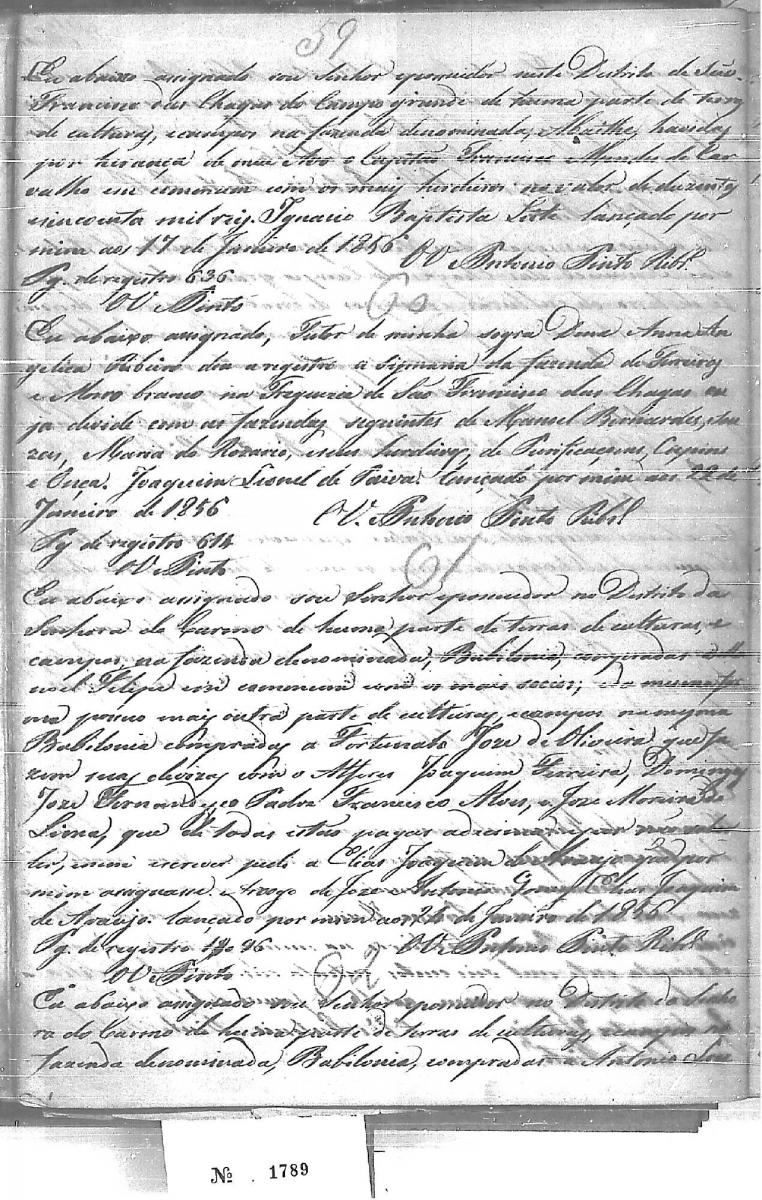 59
Eu abaixo assignado sou Senhor epossuidor neste Districto de São
Francisco das Chagas do Campo grande de huma parte de terras
de culturas, ecampos na fazenda denominada, Abaithe, havidas
por herança de meu Avo o Capitão Francisco Mendes de Car
valho em commum com os mais herdeiros no valor de duzentos
ecincoenta mil reis. Ignacio Baptista Leite lançado por
mim aos 17 de Janeiro de 1856 OV. Antonio Pinto Ribr.º
Pg. de registro 636
OV. Pinto
60
Eu abaixo assignado, Tutor de minha sogra Dona Anna An
gelica Ribeiro dou a registro a sismaria da fazenda de Ferreiros
e Morro branco na Freguezia de São Francisco das Chagas cu
ja divide com as fazendas seguintes de Manoel Bernardes,
Maria do Rozario, eseus herdeiros, de Purificação,
e Onça. Joaquim Lionel de Paiva. lançado por mim aos 22 de
Janeiro de 1856 OV. Antonio Pinto Ribr.º
Pg. de registro 614
OV. Pinto
61
Eu abaixo assignado sou Senhor epossuidor no Districto da
Senhora do Carmo de huma parte de terras de culturas, e
campos, na fazenda denominada, Babilonia, compradas a M
noel Felipe em commum com os mais socios; eda mesma for
ma possuo mais outra parte de culturas, ecampos na mesma
Babilonia compradas a Fortunato Joze de Oliveira que fa
zem suas divizas com o Alferes Joaquim Ferreira, Domingos
Joze Fernandes, o Padre Francisco Alves, e Joze Moreira de
Lima, que de todas estas pagas por não sa
ber, enem escrever pedi a Elias Joaquim de Araujo que por
mim assignasse Arogo de Joze Antonio Elias Joaquim
de Araujo. lançado por mim aos 24 de Janeiro de 1856
Pg. de registro OV. Antonio Pinto Ribr.º
OV. Pinto
62
Eu abaixo assignado sou Senhor epossuidor no Districto da Senho
ra do Carmo de huma parte de terras de culturas, ecampos na
fazenda denominada, Babilonia, compradas a Antonio Joze
Nº 1789